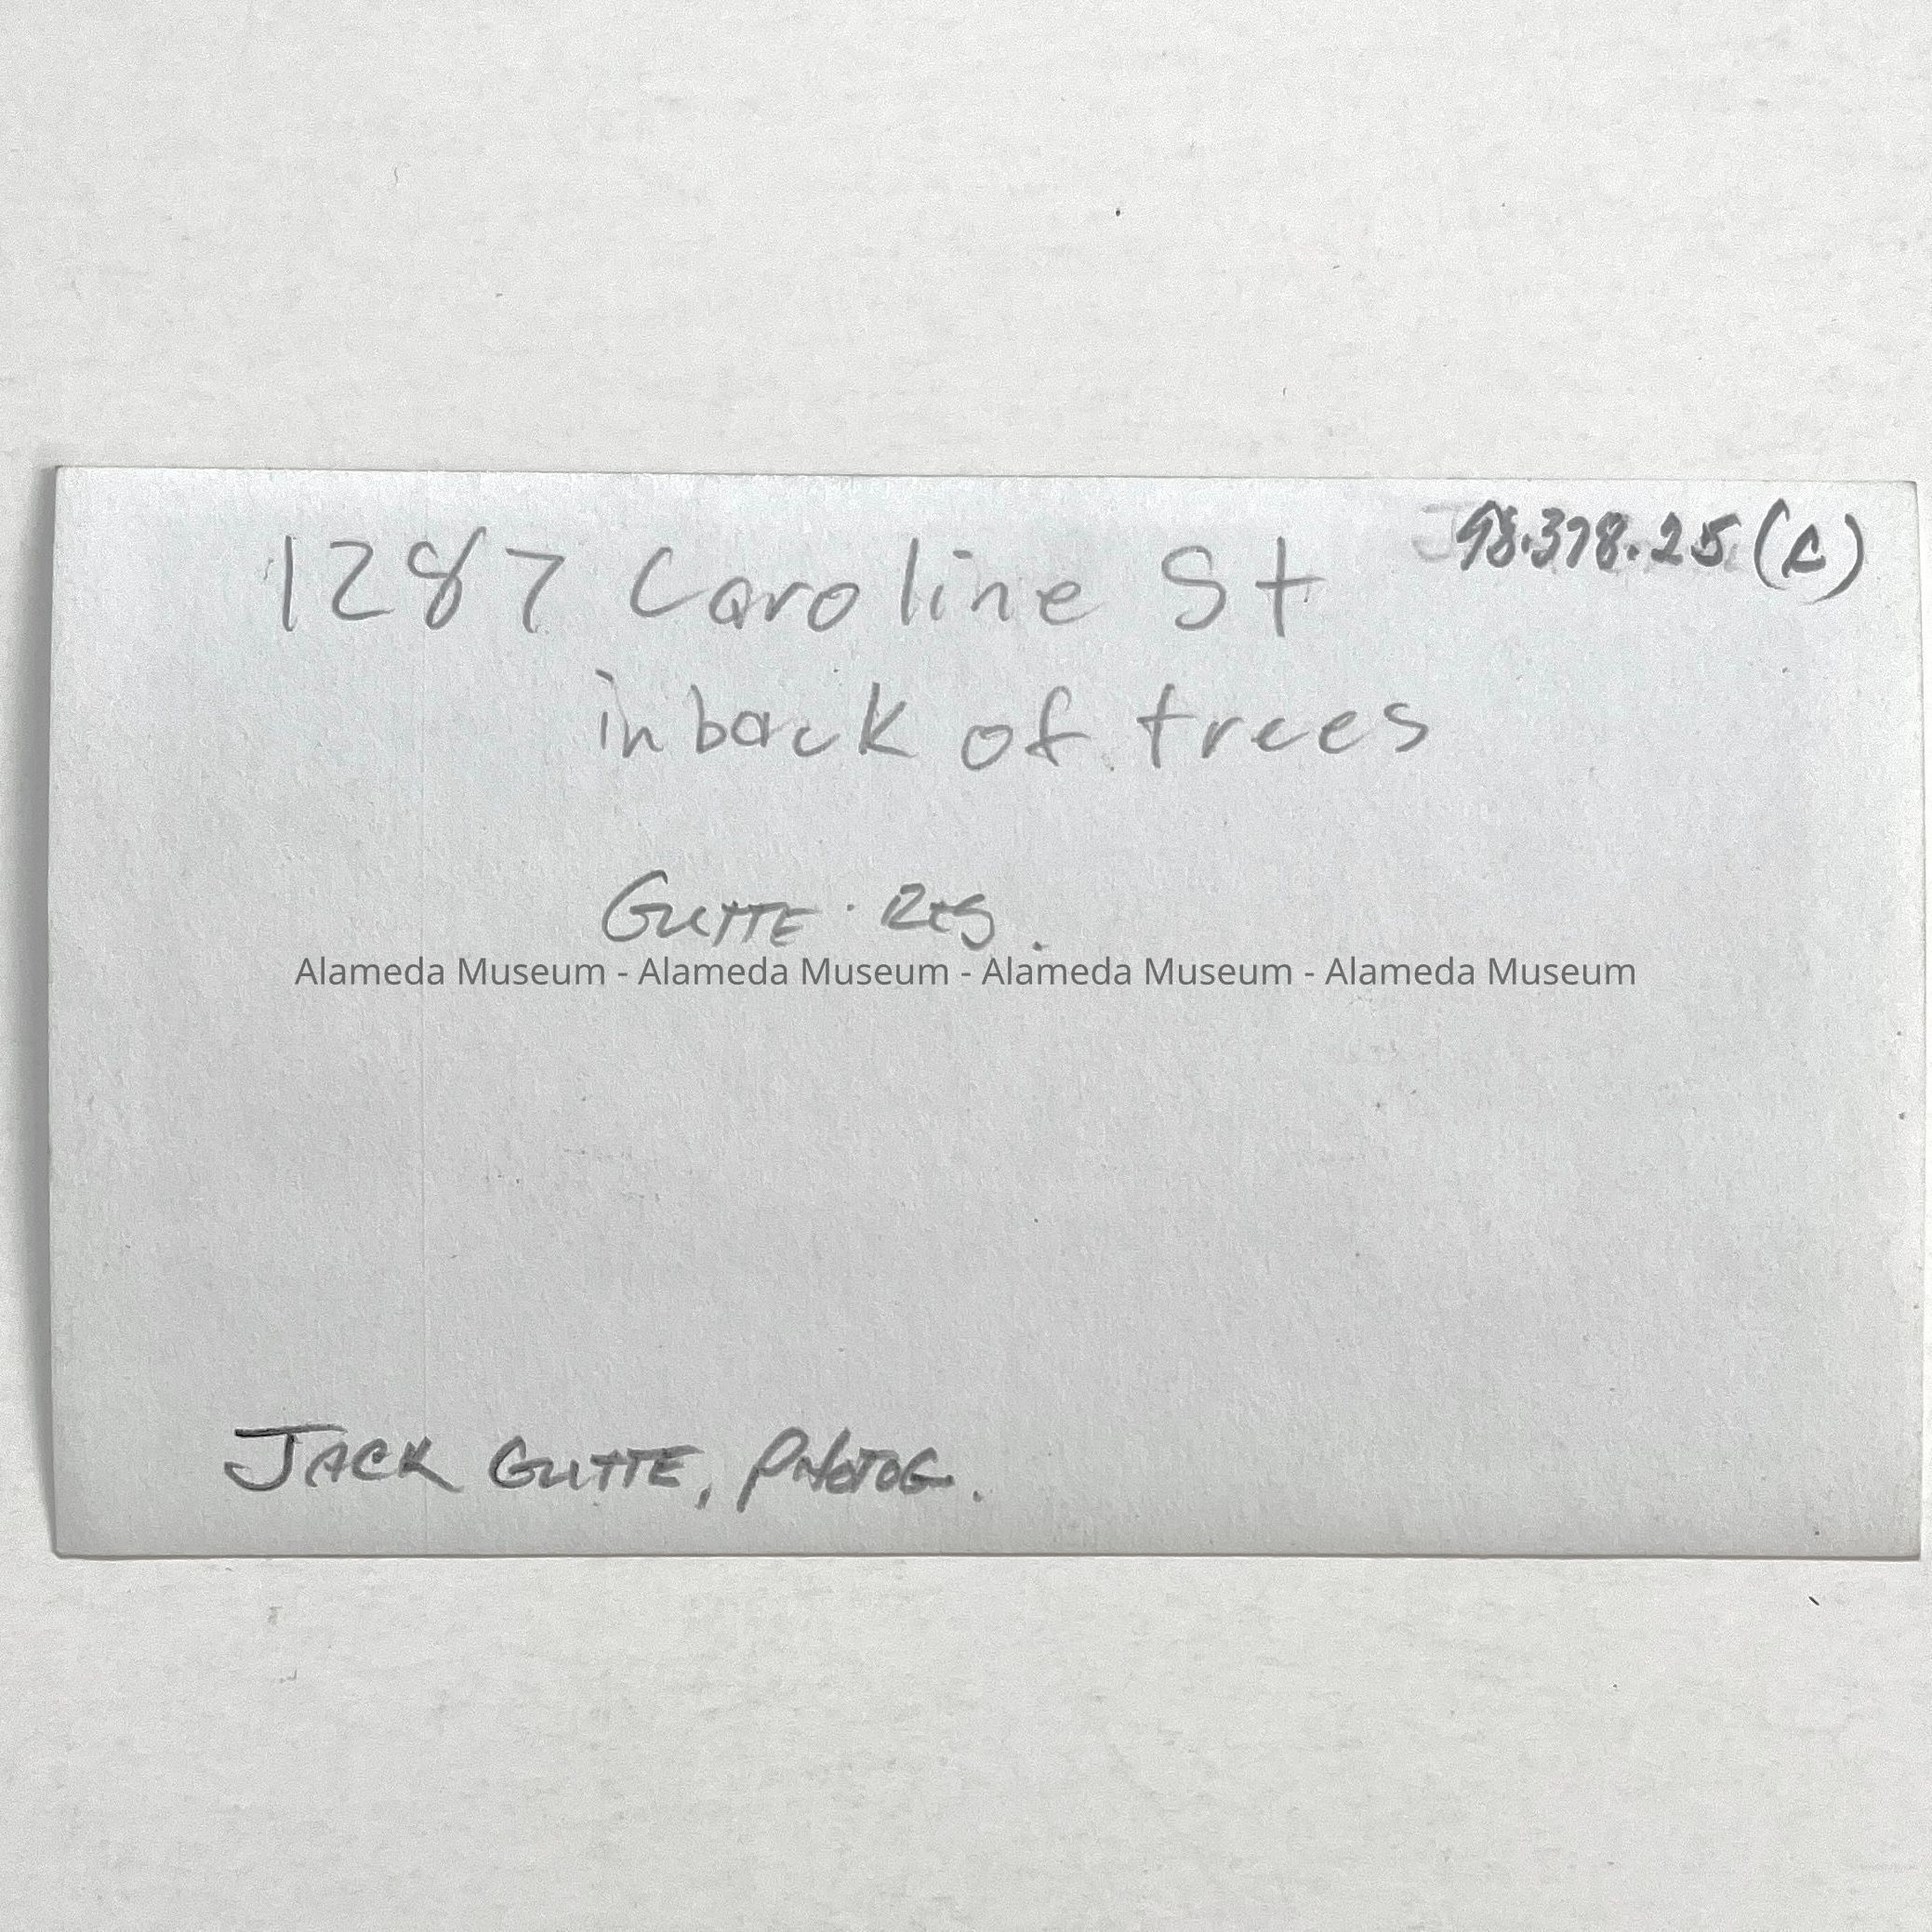 98.378.25 (c)
1287 Caroline St
in back of trees
GUTTE · RES.
Alameda Museum - Alameda Museum - Alameda Museum - Alameda Museum
JACK GUTTE, PHOTOG.